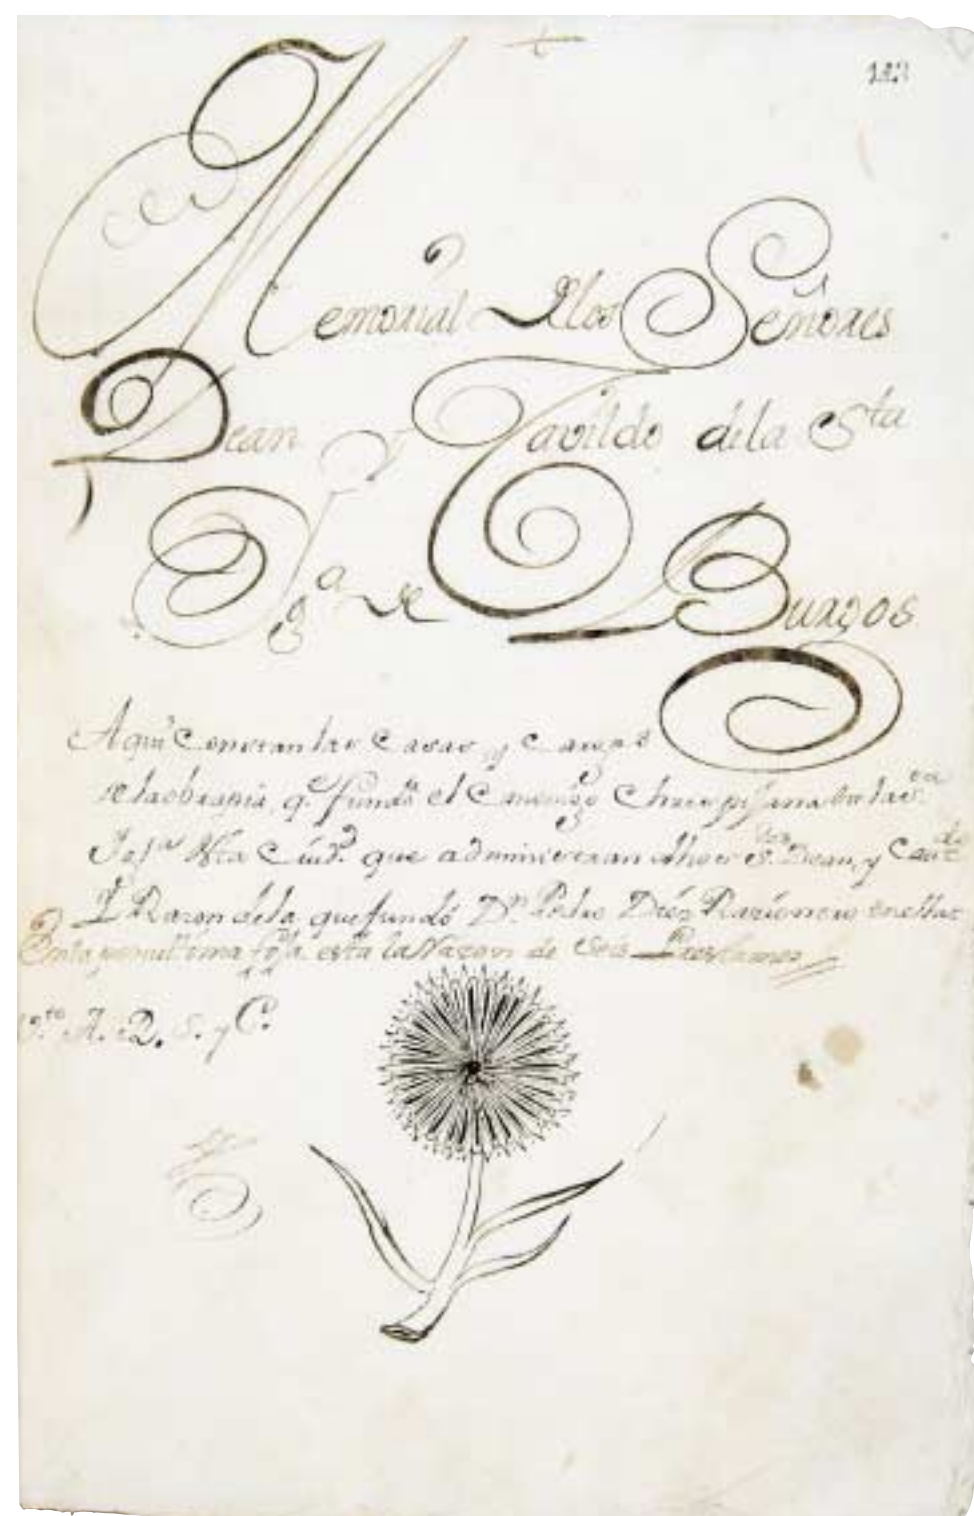 123
Memorial de los Señores
Dean y Cavildo de la Sta
Yga de Burgos
Aqui Constan las Casas y Cargas
de la obra pia, q. fundó el Canonigo
Yga de esta Ciud. que administran dhos Ss. Dean, y Cavdo
Y Razon de la que fundó Dn Pedro Diez Razionero en ella
En la penultima foja esta la Razon de Seis Prestamos
A. D. S. y C.